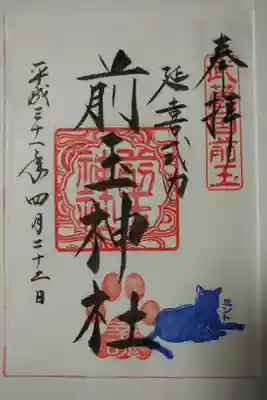 奉拝
延喜式内
前玉神社
平成三十一年四月二十二日
ミント